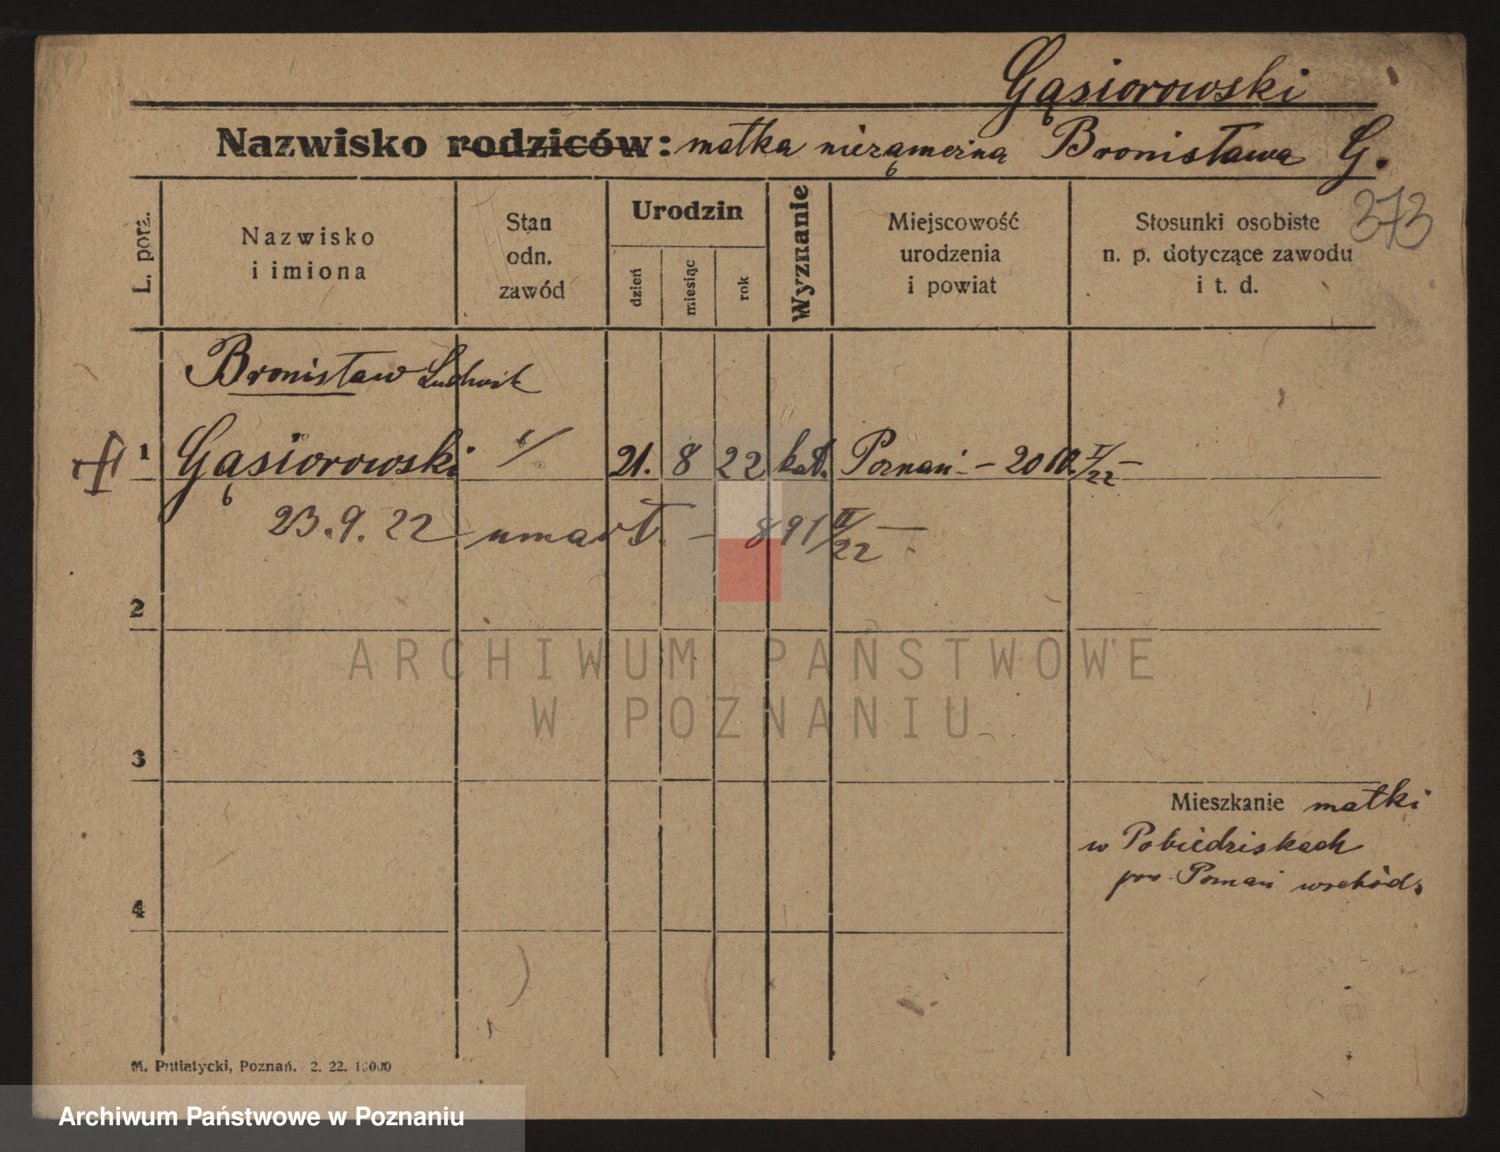 Gąsiorowski
Nazwisko rodziców: matka niezamężna Bronisława G.
373
L. porz.
Nazwisko
i imiona
Stan
odn.
zawód
Urodzin
dzień
miesiąc
rok
Wyznanie
Miejscowość
urodzenia
i powiat
Stosunki osobiste
n. p. dotyczące zawodu
i t. d.
Bronisław Ludwik
1 Gąsiorowski 21. 8 22 kat. Poznań - 2010 I/22 -
23.9.22 umarł. - 891 II/22 -
2
3
4
Mieszkanie matki
w Pobiedziskach
pow. Poznań wschód.
M. Putiatycki, Poznań. 2. 22. 10000
ARCHIWUM PAŃSTWOWE
W POZNANIU
Archiwum Państwowe w Poznaniu